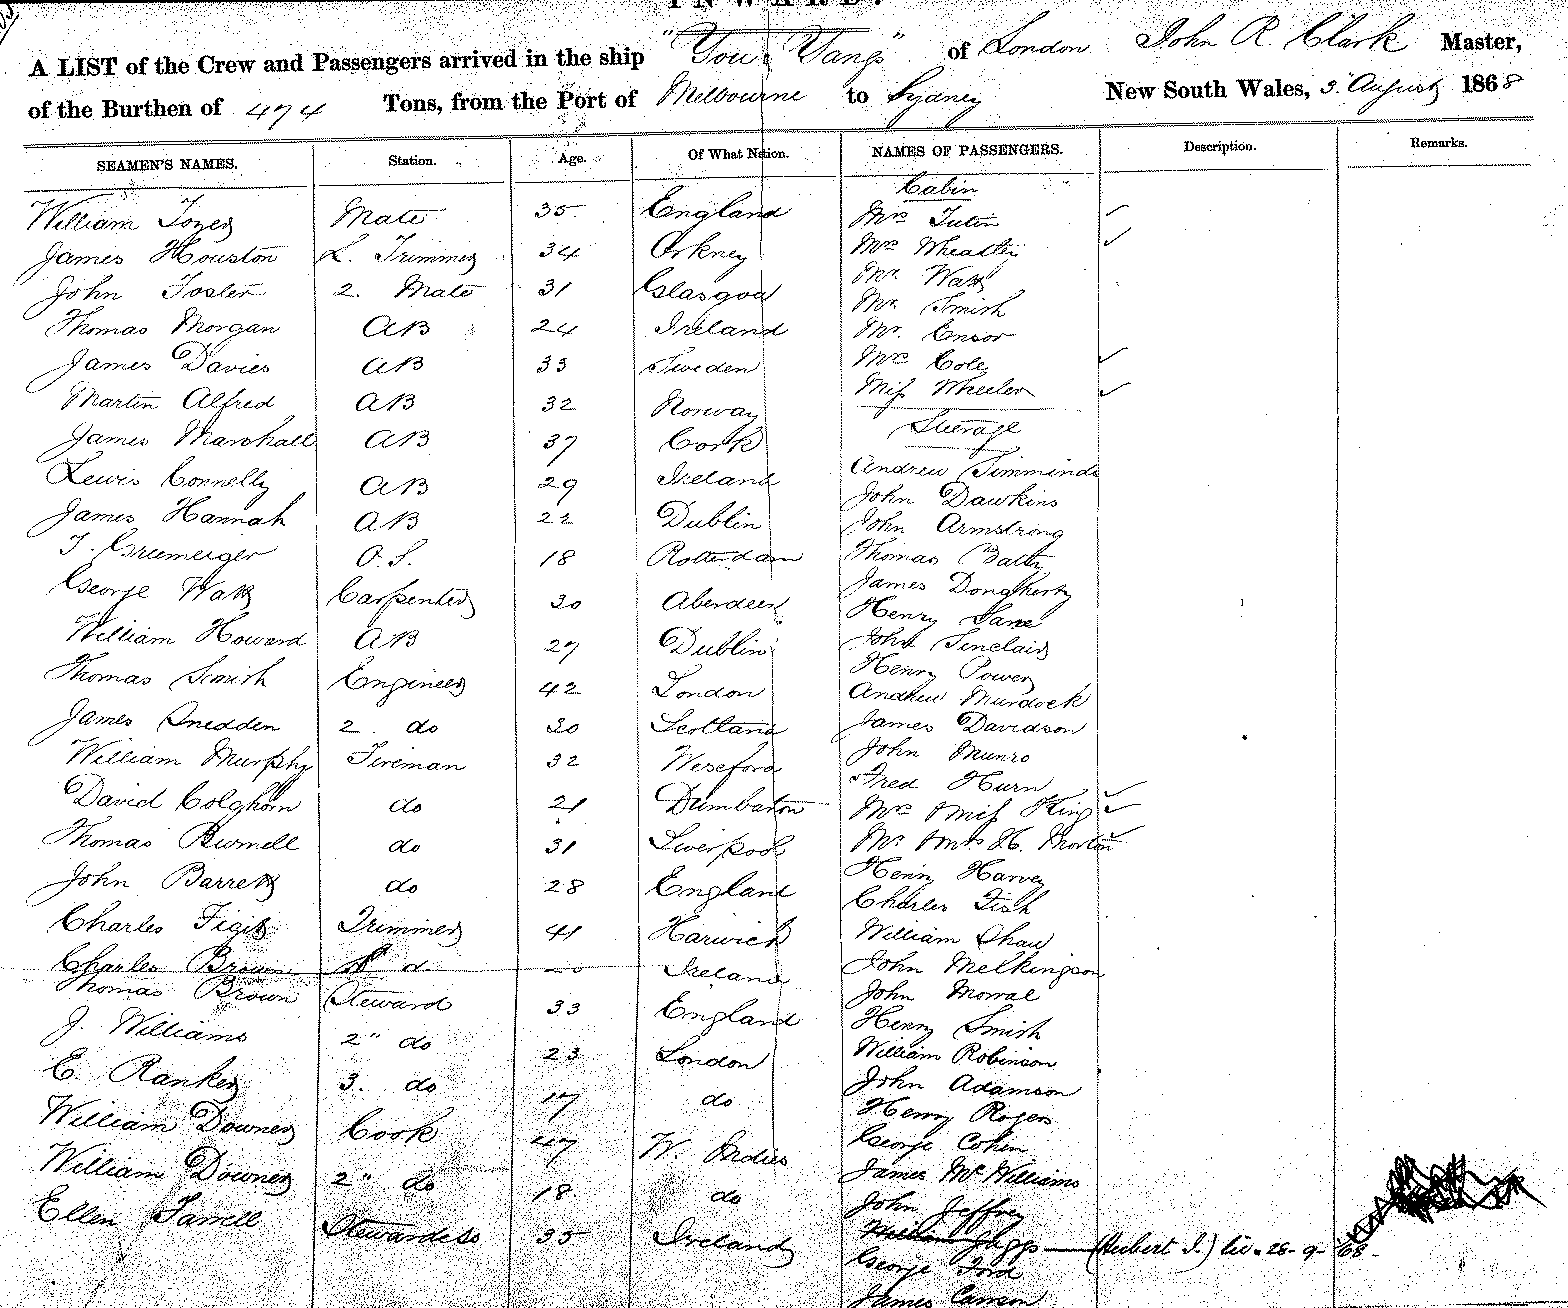 INWARD.
A LIST of the Crew and Passengers arrived in the ship "You Yangs" of London John R Clark Master,
of the Burthen of 474 Tons, from the Port of Melbourne to Sydney New South Wales, 3 August 1868
SEAMEN'S NAMES. Station. Age. Of What Nation. NAMES OF PASSENGERS. Description. Remarks.
William Tozer Mate 35 England
James Houston L. Trimmer 34 Orkney
John Foster 2. Mate 31 Glasgow
Thomas Morgan AB 24 Ireland
James Davies AB 33 Sweden
Martin Alfred AB 32 Norway
James Marshall AB 37 Cork
Lewis Connelly AB 29 Ireland
James Hannah AB 22 Dublin
O.S. 18 Rotterdam
George Watts Carpenter 30 Aberdeen
William Howard AB 27 Dublin
Thomas Smith Engineer 42 London
James Snedden 2. do 30 Scotland
William Murphy Fireman 32 Wexford
David Colghorn do 21 Dumbarton
Thomas Burnell do 31 Liverpool
John Barrett do 28 England
Charles Trimmer 41 Harwich
Charles Brown Ireland
Thomas Brown Steward 33 England
J. Williams 2" do 23 London
E. Ranken 3. do 17 do
William Downer Cook 47 W. Indies
William Downer 2" do 18 do
Ellen Farrell Stewardess 35 Ireland
Cabin
Mrs Tuten
Mrs Wheatly
Mr Watt
Mr Smith
Mr. Ensor
Mrs Cole
Miss Wheeler
Steerage
Andrew Simminds
John Dawkins
John Armstrong
Thomas Batty
James Dongherty
Henry Lane
John Sinclair
Henry Power
Andrew Murdock
James Davidson
John Munro
Fred Hurn
Mrs & Miss King
Mr & Mrs H. Morton
Henry Harvey
Charles Fish
William Shaw
John Melkingson
John Mowal
Henry Smith
William Robinson
John Adamson
Henry Rogers
George Cohen
James McWilliams
John Jeffrey
William Jaggs (Hubert J.) 28-9-68-
George Ford
James Carson